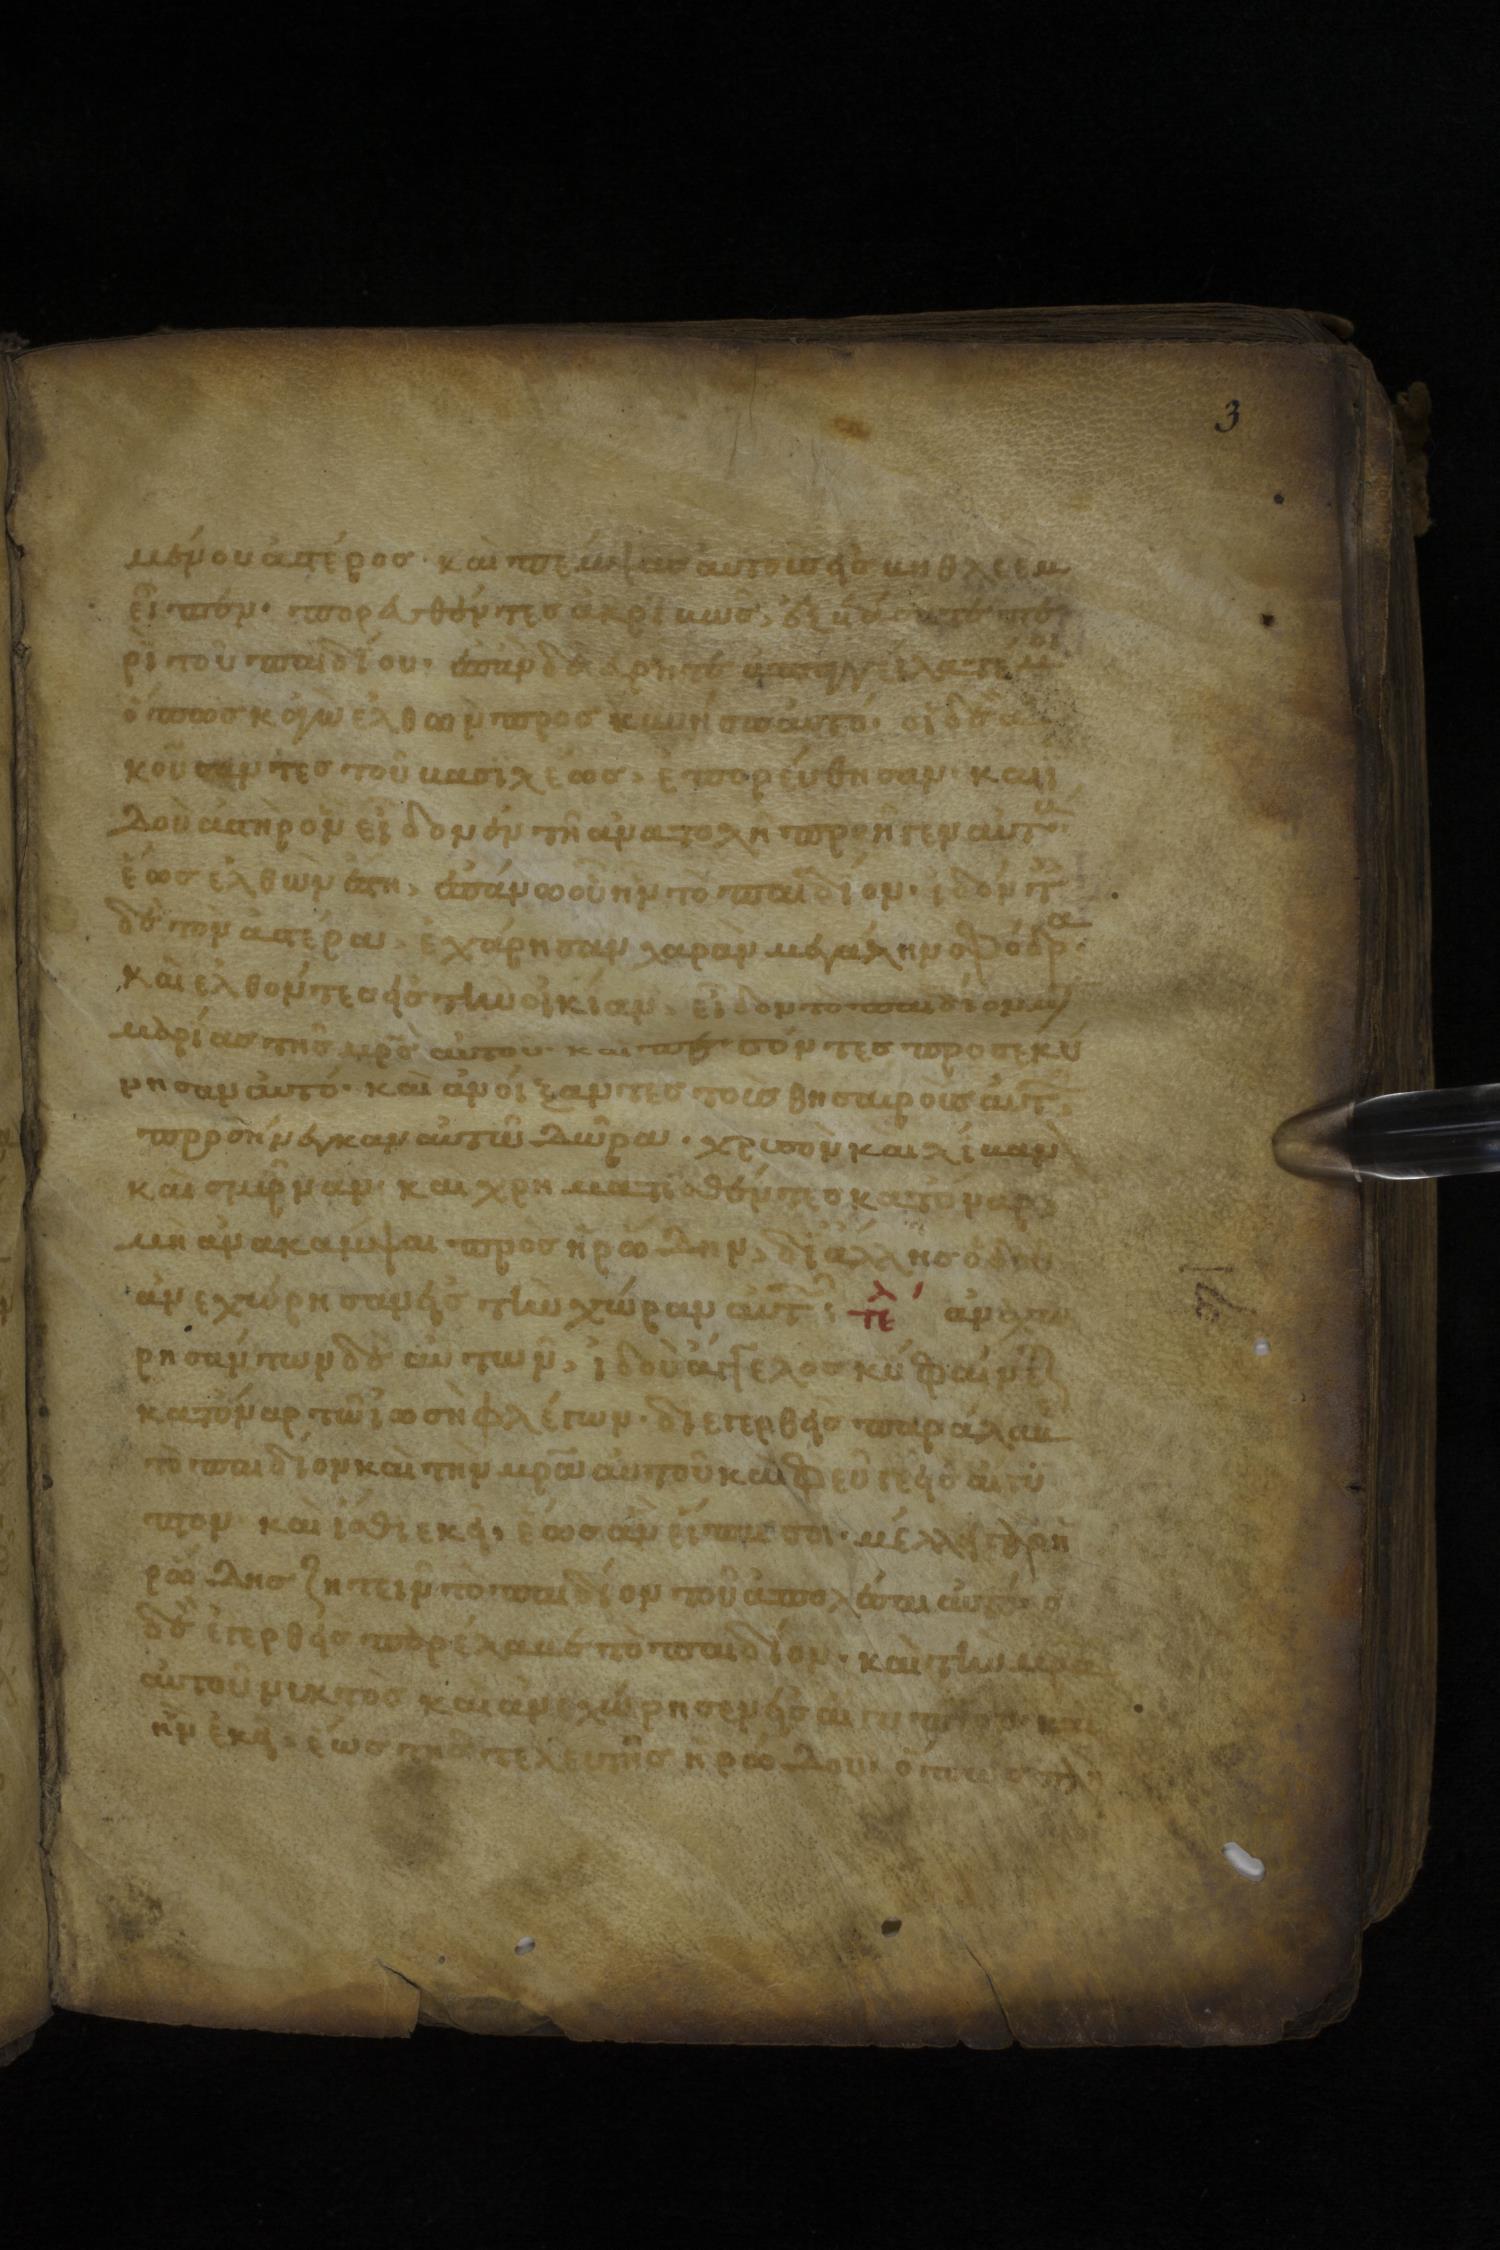 3
μένου ἀστέρος· καὶ πέμψας αὐτοὺς εἰς βηθλεὲμ
εἶπεν· πορευθέντες ἀκριβῶς, ἐξετάσατε πε
ρὶ τοῦ παιδίου· ἐπὰν δὲ εὕρητε ἀπαγγείλατέ μοι
ὅπως κἀγὼ ἐλθὼν προσκυνήσω αὐτό· οἱ δὲ ἀ
κούσαντες τοῦ βασιλέως, ἐπορεύθησαν· καὶ ἰ
δοὺ ἀστὴρ ὃν εἶδον ἐν τῆ ἀνατολῆ προῆγεν αὐτ
ἕως ἐλθὼν ἔστη, ἐπάνω οὗ ἦν τὸ παιδίον· ἰδόντ
δὲ τὸν ἀστέρα, ἐχάρησαν χαρὰν μεγάλην σφόδρα·
καὶ ἐλθόντες εἰς τὴν οἰκίαν, εἶδον τὸ παιδίον μ
μαρίας τῆς μρς αὐτοῦ καὶ πεσόντες προσεκύ
νησαν αὐτό· καὶ ἀνοίξαντες τοὺς θησαυροὺς αὐτ,
προσήνεγκαν αὐτῶ δῶρα· χρυσὸν καὶ λίβαν
καὶ σμύρναν· καὶ χρηματισθέντες κατόναρ,
μὴ ἀνακάμψαι πρὸς ἡρώδην, δι ἄλλης ὁδοῦ
ἀνεχώρησαν εἰς τὴν χώραν αὐτ· τελ ἀναχω
ρησάντων δὲ αὐτῶν, ἰδοὺ ἄγγελος κυ φαίνετ
κατόναρ τῶ ἰωσὴφ λέγων· διεγερθεὶς παράλαβε
τὸ παιδίον καὶ τὴν μρα αὐτοῦ καὶ φεῦγε εἰς αἴγυ
πτον καὶ ἴσθι ἐκεῖ, ἕως ἂν εἴπω σοι· μέλλει γὰρ ἡ
ρώδης ζητεῖν τὸ παιδίον τοῦ ἀπολέσαι αὐτό· ὁ
δὲ ἐγερθεὶς παρέλαβε τὸ παιδίον· καὶ τὴν μρα
αὐτοῦ νυκτὸς καὶ ἀνεχώρησεν εἰς αἴγυπτον· καὶ
ἦν ἐκεῖ, ἕως τῆς τελευτῆς ἡρώδου· ὅπως πλη